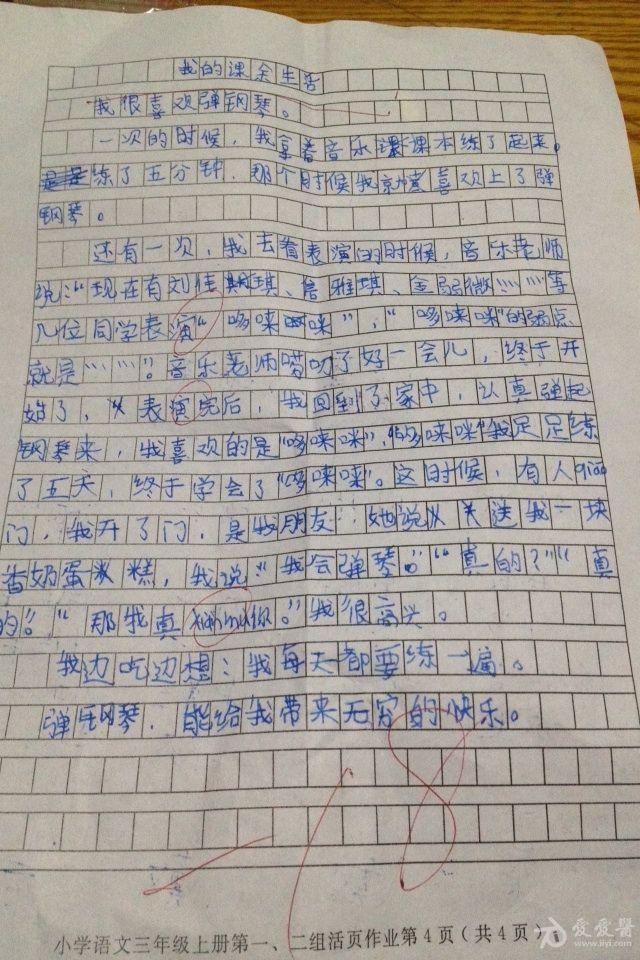 我的课余生活
我很喜欢弹钢琴。
一次的时候，我拿着音乐课课本练了起来。
练了五分钟，那个时候我就喜欢上了弹
钢琴。
还有一次，我去看表演的时候，音乐老师
说：“现在有刘佳琪、詹雅琪、金弱微……等
几位同学表演“哆唻咪”，“哆唻咪”的弱点
就是……”。音乐老师唠叨了好一会儿，终于开
始了，从表演完后，我回到了家中，认真弹起
钢琴来，我喜欢的是“哆唻咪”，“哆唻咪”我足足练
了五天，终于学会了“哆唻唻”。这时候，有人
门，我开了门，是我朋友 她说从 关送我一块
香奶蛋糕，我说“我会弹琴。”“真的？”“真
的”。“那我真 你。”我很高兴。
我边吃边想：我每天都要练一遍。
弹钢琴，能给我带来无穷的快乐。
18
小学语文三年级上册第一、二组活页作业第4页（共4页）
爱爱医
www.iiyi.com